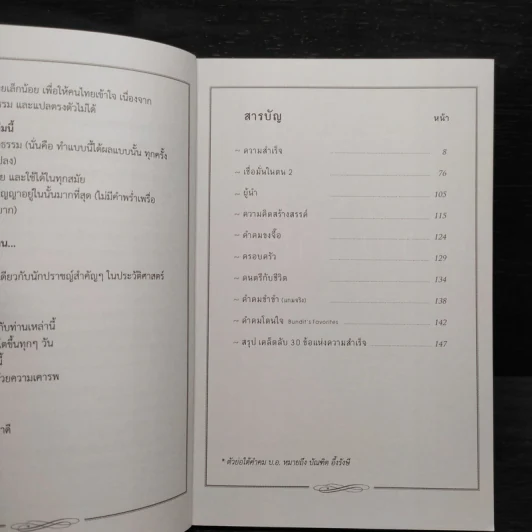 ยเล็กน้อย เพื่อให้คนไทยเข้าใจ เนื่องจาก
รรม และแปลตรงตัวไม่ได้
มนี้
ธรรม (นั่นคือ ทำแบบนี้ได้ผลแบบนั้น ทุกครั้ง
ปลง)
ย และใช้ได้ในทุกสมัย
ญญาอยู่ในนั้นมากที่สุด (ไม่มีคำพร่ำเพรื่อ
มาก)
น...
ดียวกับนักปราชญ์สำคัญๆ ในประวัติศาสตร์
กับท่านเหล่านี้
โตขึ้นทุกๆ วัน
นี้
ด้วยความเคารพ
าดี
สารบัญ หน้า
– ความสำเร็จ 8
– เชื่อมั่นในตน 2 76
– ผู้นำ 105
– ความคิดสร้างสรรค์ 115
– คำคมจงจื้อ 124
– ครอบครัว 129
– ดนตรีกับชีวิต 134
– คำคมขำขำ (แกมจริง) 138
– คำคมโดนใจ Bundit's Favorites 142
– สรุป เคล็ดลับ 30 ข้อแห่งความสำเร็จ 147
* ตัวย่อใต้คำคม บ.อ. หมายถึง บัณฑิต อึ้งรังษี